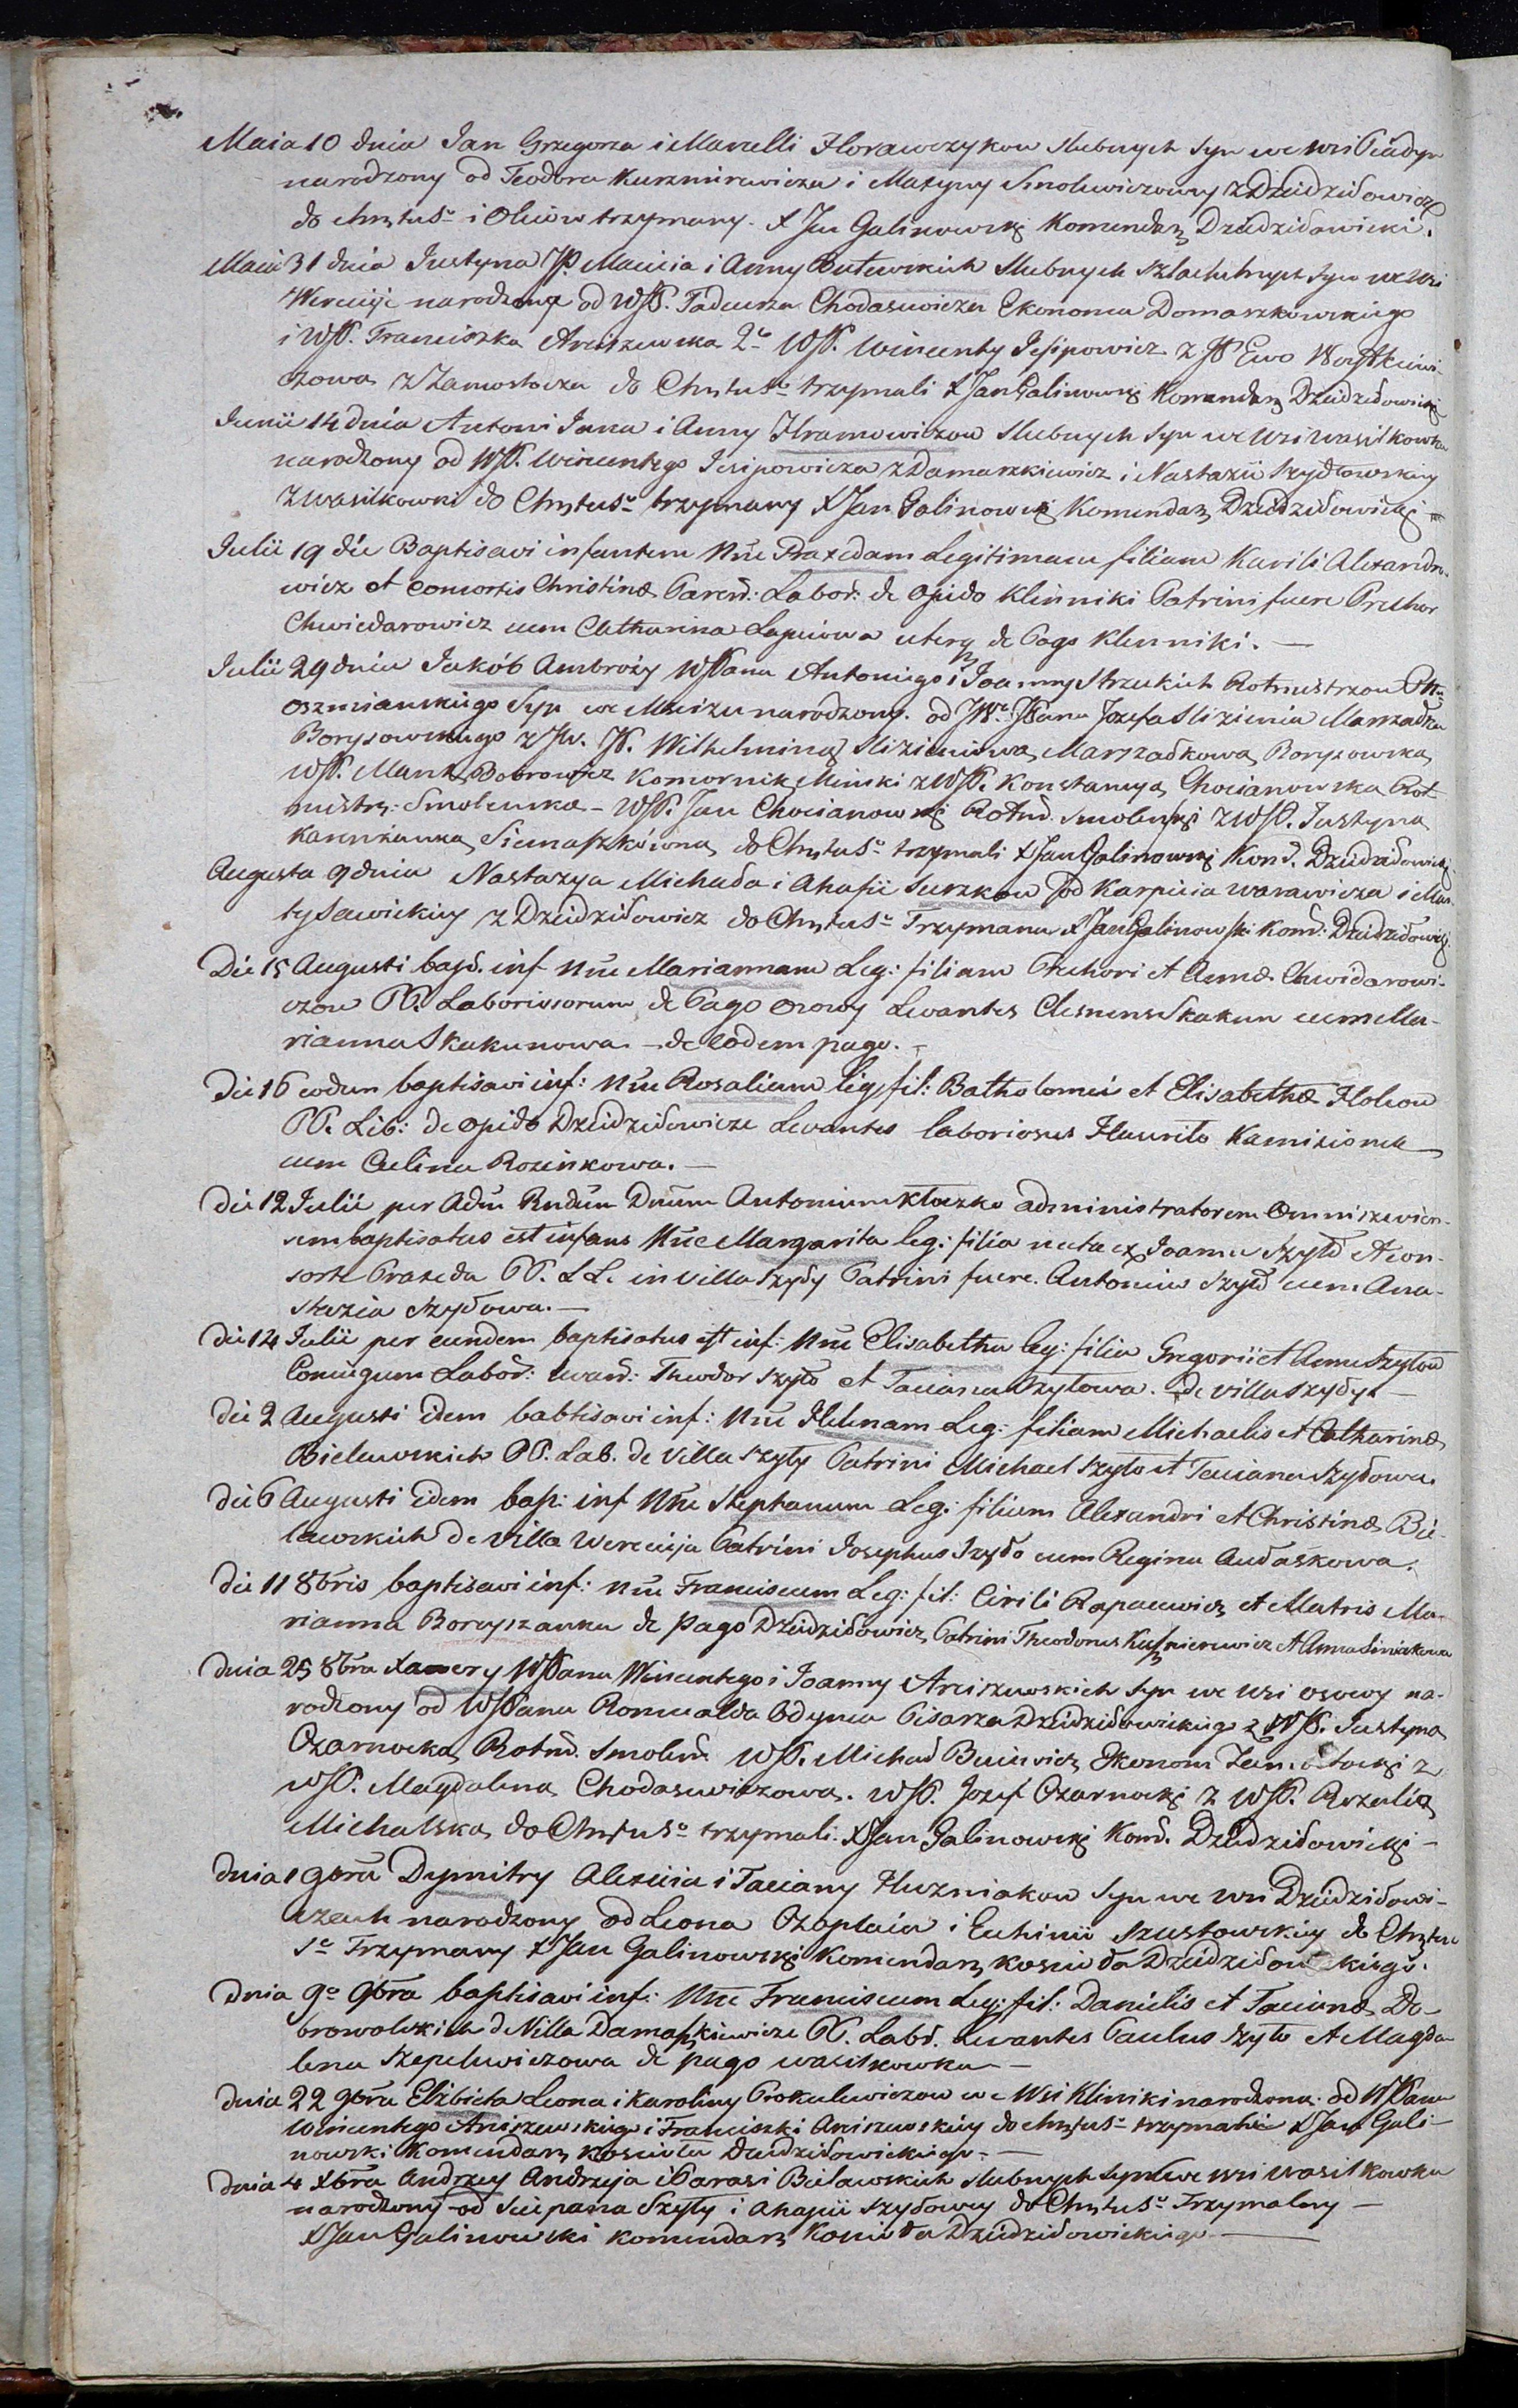 Maia 10 dnia Jan Grzegorza i Marcelli Horawczykow slubnych syn we wsi
narodzony od Teodora Kuszmirewicza i Matyny Smolewiczowey z Dziedziłowicz
do chrztu S° i Oleiow trzymany. X Jan Galinowski Komendarz Dziedziłowicki.
Maia 31 dnia Justyna JP. Macieia i Anny Butewskich slubnych szlachetnych syn we wsi
Werecije narodzony od WJP. Tadeusza Chodasewicza Ekonoma Domaszkowskiego
i WJP. Franciszka Arciszewska 2° WJP. Wincenty Jesipowicz z JP Ewo
czowa z Zamostocza do Chrztu S° trzymali X Jan Galinowski Komendarz Dziedziłowicki
Junii 14 dnia Antoni Jana i Anny Hramowiczow slubnych syn we wsi Wasilkowka
narodzony od WJP. Wincentego Jesipowicza z Damaszkiewicz i Nastazii Szydłowskiey
z Wasilkowki do Chrztu S° trzymany X Jan Galinowski Komendarz Dziedziłowicki
Julii 19 die Baptisavi infantem Nne Praxedam Legitimam filiam Kirili Alexandro-
wicz et consortis Christinæ Paren: Labor: de opido Klinniki Patrini fuere Prechor
Chwiedarowicz cum Catharina Lapciowa uterq de Pago Klinniki. —
Julii 29 dnia Jakób Ambroży WJPana Antoniego i Joanny Strzeckich Rotmistrzow Ptu
Oszmianskiego Syn we Mieizu narodzony. od JW. JPana Jozefa Slizienia Marszałka
Borysowskiego z JW. JP. Wilhelminą Slizieniową Marszałkową Borysowską
WJP. Mark Bobrowicz Komornik Minski z WJP. Konstancyą Chocianowską Rot-
mistrz: Smolenska - WJP. Jan Chocianowski Rotm. Smolenski z WJP. Justyną
Siemaszkówną do Chrztu S° trzymali X Jan Galinowski Kom. Dziedziłowicki
Augusta 9 dnia Nastazya Michała i Ahafii Surzkow od Karpieia Warawicza i Mar-
ty Sawickiey z Dziedziłowicz do Chrztu S° Trzymana X Jan Galinowski Kom: Dziedziłowicki
Die 15 Augusti bapt. inf Nne Mariannam Leg: filiam Prechori et Annæ Chwidarowi-
czow PP. Laboriosorum de Pago Osowy Levantes Clemens Skakun cum Ma-
rianna Skakunowa — de eodem pago. —
Die 16 eodem baptisavi inf: Nne Rosaliam leg: fil: Batholomeis et Elisabethæ Holcow
PP. Lib: de opido Dziedziłowicze Levantes laboriosus Hawriło Kamizionek
cum Culina Rozinkowa. —
Die 12 Julii per Adm Rndum Dnum Antonium Kłoczko administratorem Omniszewicen-
sem baptisatus est infans Nne Margarita leg: filia nata ex Joanne Szyło et con-
sorte Praxeda PP. LL. in villa Szyły Patrini fuere. Antonius Szyło cum Ana-
stazia Szyłowa. —
Die 14 Julii per eundem baptisatus est inf: Nne Elisabetha leg: filia Gregorii et Annæ Szyłow
Coniugum Labor: Levan: Theodor Szyło et Taciana Szyłowa. de villa Szyły —
Die 2 Augusti idem babtisavi inf: Nne Helenam Leg: filiam Michaelis et Catharinæ
Bielewskich PP. Lab. de villa Szyły Patrini Michael Szyło et Taciana Szyłowa.
Die 6 Augusti idem bap: inf Nne Stephanum Leg: filium Alexandri et Christinæ Bie-
lawskich de Villa Werecija Patrini Josephus Szyło cum Regina Audaskowa.
Die 11 8bris baptisavi inf: Nne Franciscum Leg: fil: Cirili Rapacewicz et Matris Ma-
rianna Boryszanka de pago Dziedziłowicz Patrini Theodorus Kuszmierewicz et Anna
Dnia 25 8bra Xawery WJPana Wincentego i Joanny Arciszewskich Syn we wsi Osowy na-
rodzony od WJPana Romualda Odynca Pisarza Dziedziłowickiego z WJP. Justyną
Czarnocką Rotm. Smolen. WJP. Michał Buiewicz Ekonom Zamostocki z
WJP. Magdaleną Chodasewiczową. WJP. Jozef Czarnocki z WJP. Rozalią
Michalską do Chrztu S° trzymali. X Jan Galinowski Kom. Dziedziłowicki —
Dnia 1 9bra Dymitry Alexieia i Taciany Huzniakow Syn we wsi Dziedziłowi-
czach narodzony od Leona Czaplaia i Euhinii Szustowskiey do Chrztu
S° Trzymany X Jan Galinowski Komendarz koscioła Dziedziłowickiego.
Dnia 9° 9bra baptisavi inf: Nne Franciscum Leg: fil: Danielis et Tacianæ Do-
browolskich de Villa Damaszkiewicze PP. Lab. Levantes Paulus Szyło et Magda-
lena Szepelewiczowa de pago Wasilkowka —
Dnia 22 9bra Elżbieta Leona i Karoliny Prokulewiczow we Wsi Kliniki narodzona. od WJPana
Wincentego Arciszewskiego i Franciszki Arciszewskiey do chrztu S° trzymana X Jan Gali-
nowski Komendarz Koscioła Dziedziłowickiego. —
Dnia 4 Xbra Andrzey Andrzeja i Parasi Bielawskich slubnych Syn we wsi Wasilkowka
narodzony od Sciepana Szyły i Ahapii Szyłowey do Chrztu S° Trzymalny —
X Jan Galinowski Komendarz Koscioła Dziedziłowickiego —